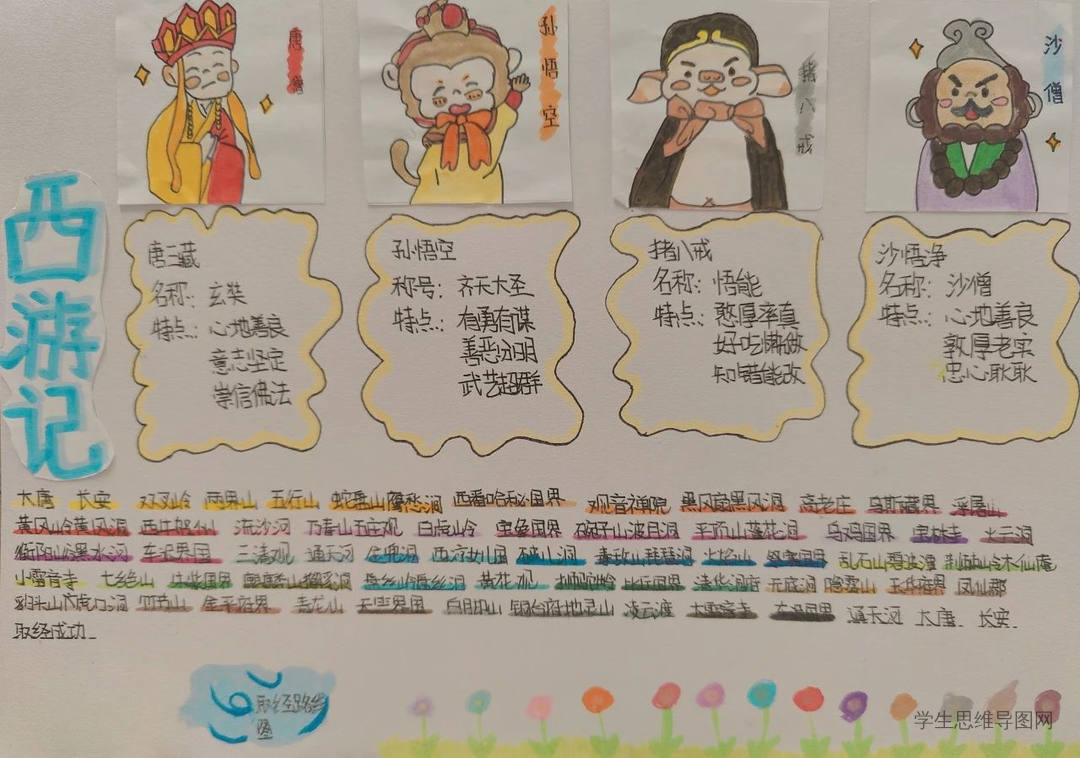 西游记
唐僧
孙悟空
猪八戒
沙僧
唐三藏
名称：玄奘
特点：心地善良
意志坚定
崇信佛法
孙悟空
称号：齐天大圣
特点：有勇有谋
善恶分明
武艺超群
猪八戒
名称：悟能
特点：憨厚率真
好吃懒做
知错能改
沙悟净
名称：沙僧
特点：心地善良
敦厚老实
忠心耿耿
大唐 长安 双叉岭 两界山 五行山 蛇盘山鹰愁涧 西番哈咇国界 观音禅院 黑风窟黑风洞 高老庄 乌斯藏界 浮屠山
黄风岭黄风洞 流沙河 万寿山五庄观 白虎岭 宝象国界 碗子山波月洞 平顶山莲花洞 乌鸡国界 宝林寺 火云洞
衡阳峪黑水河 车迟国 三清观 通天河 金兜洞 西凉女国 毒敌山琵琶洞 火焰山 乱石山碧波潭 荆棘岭木仙庵
小雷音寺 七绝山 盘丝岭盘丝洞 黄花观 狮驼岭 比丘国界 清华洞府 无底洞 隐雾山 玉华府界 凤仙郡
豹头山虎口洞 竹节山 金平府界 青龙山 天竺界国 百脚山 铜台府地灵山 凌云渡 大雷音寺 通天河 大唐 长安
取经成功
取经路线
图
学生思维导图网